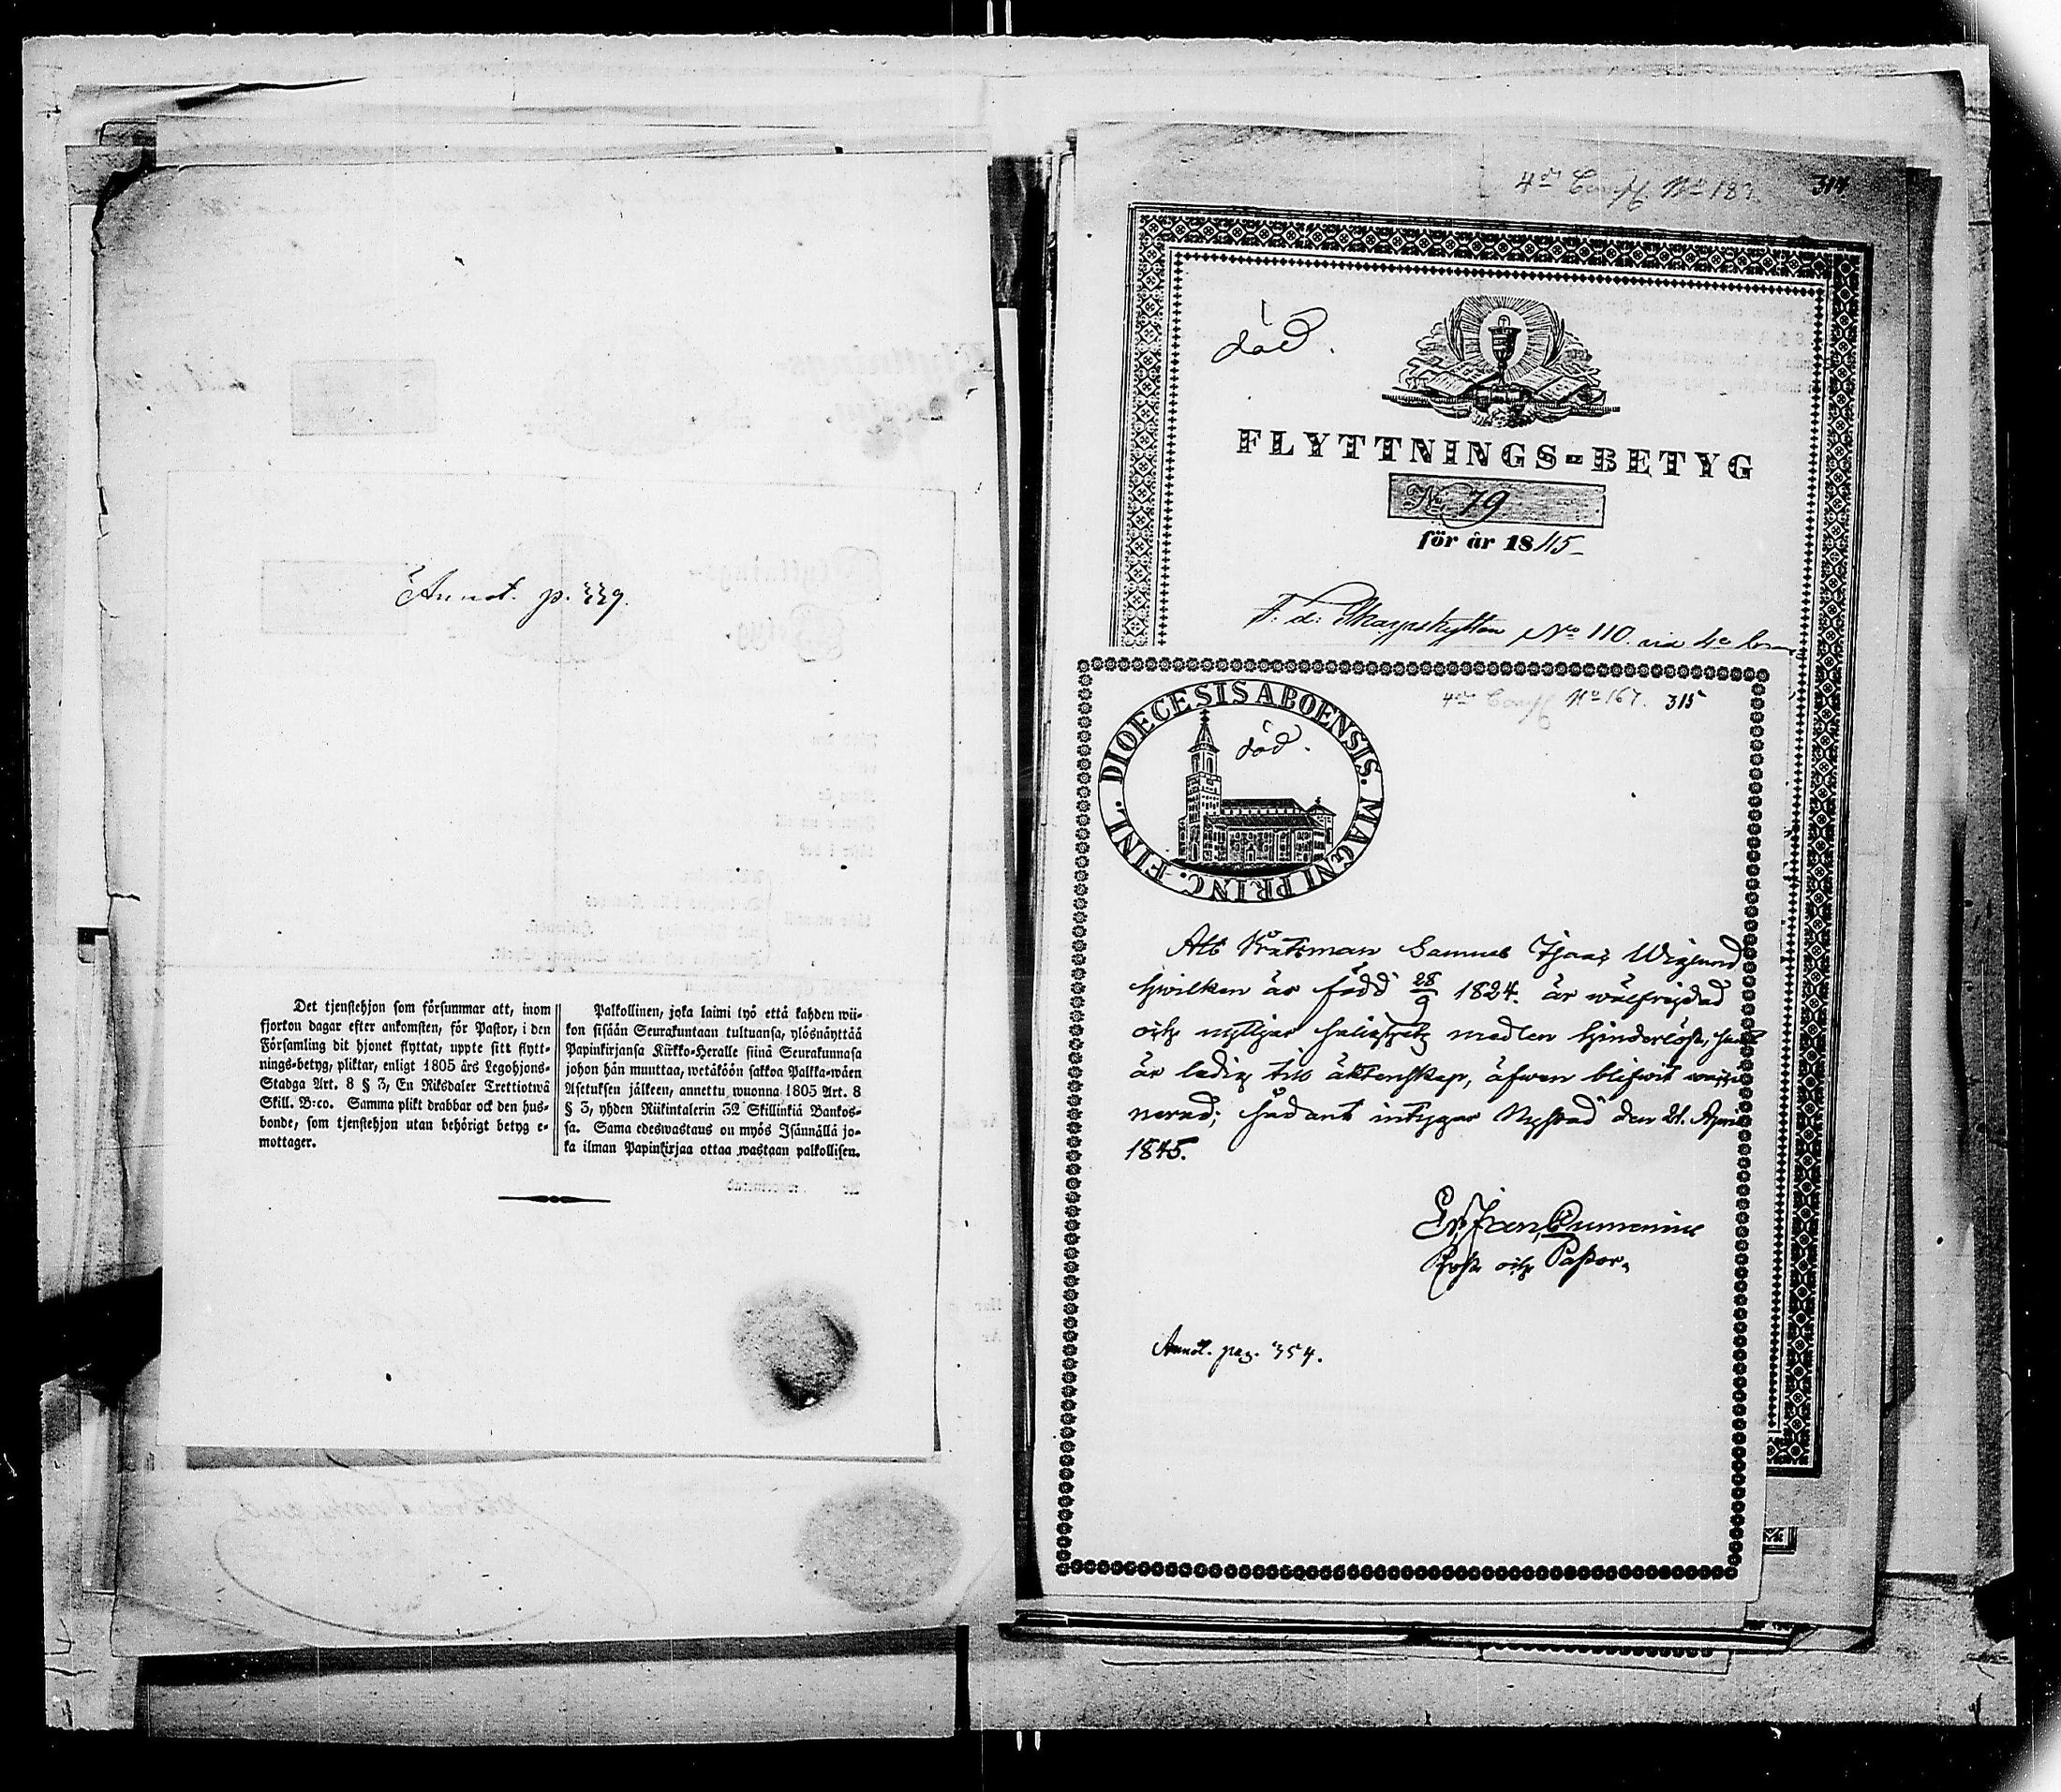 Annot. p. 339.
Det tjenstehjon som försummar att, inom
fjorton dagar efter ankomsten, för Pastor, i den
Församling dit hjonet flyttat, uppte sitt flytt-
nings-betyg, pliktar, enligt 1805 års Legohjons-
Stadga Art. 8 § 3, En Riksdaler Trettiotwå
Skill. B:co. Samma plikt drabbar ock den hus-
bonde, som tjenstehjon utan behörigt betyg e-
mottager.
Palkollinen, joka laimi lyö että kahden wii-
kon sisään Seurakuntaan tultuansa, ylösnäyttää
Papinkirjansa Kirkko-Heralle siinä Seurakunnasa
johon hän muuttaa, wetäköön sakkoa Palkka-wäen
Asetuksen jälkeen, annettu wuonna 1805 Art. 8
§ 3, yhden Riikintalerin 32 Skillinkiä Bankos-
sa. Sama edeswastaus on myös Isännällä jo-
ka ilman Papinkirjaa ottaa wastaan palkollisen.
4de Comp. No 183. 314
död.
FLYTTNINGS-BETYG
No 79
för år 1845
F. d. Skarpskytten No 110. vid 4e
4de Comp. No 167. 315
DIOECESIS ABOENSIS. MAGNI PRINC. FINL.
död.
Att Båtsman Samuel Wiglund
hwilken är född 28/9 1824. är wälfrejdad
och nyttjar medlen hinderlöst, samt
är ledig till äktenskap, äfwen blifwit wacci-
nerad; sådant intygar Nystad den 21. April
1845.
Cumenius
Prost och Pastor.
Annot. pag. 354.